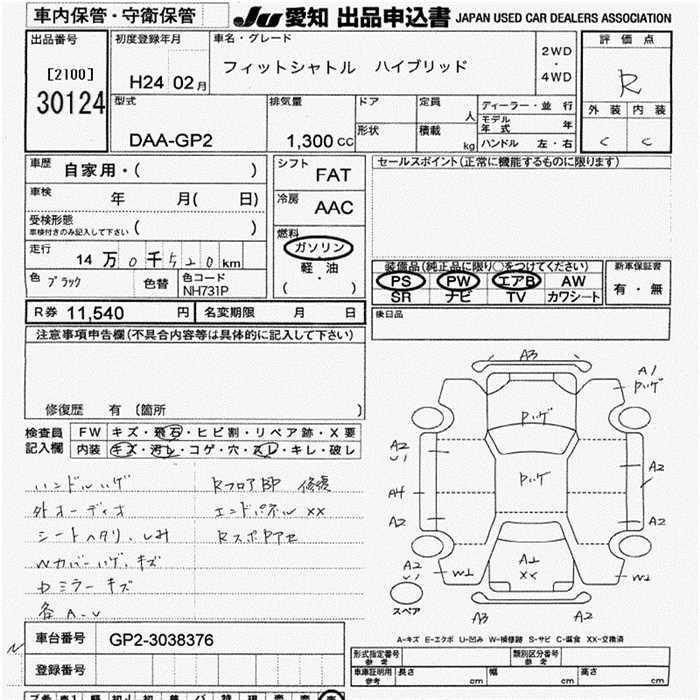 車内保管・守衛保管
JU 愛知 出品申込書 JAPAN USED CAR DEALERS ASSOCIATION
出品番号
[2100]
30124
初度登録年月
H24 02月
車名・グレード
フィットシャトル ハイブリッド
2WD
・
4WD
評価点
R
外装 内装
C C
型式
DAA-GP2
排気量
1,300 cc
ドア
形状
定員
人
積載
kg
ディーラー・並 行
モデル年式 年
ハンドル 左・右
車歴 自家用・( )
車検 年 月( 日)
受検形態
車検付きのみ記入して下さい ( )
走行 14万0千520km
色 ブラック 色替 色コード
NH731P
シフト FAT
冷房 AAC
燃料
ガソリン
軽・油
( ・ )
セールスポイント(正常に機能するものに限ります)
装備品(純正品に限り○をつけてください)
PS PW エアB AW
SR ナビ TV カワシート
新車保証書
有・無
R券 11,540 円 名変期限 月 日
後日品
注意事項申告欄(不具合内容等は具体的に記入して下さい)
修復歴 有 〔箇所 〕
検査員
記入欄
FW キズ・飛石・ヒビ割・リペア跡・X要
内装 キズ・汚レ・コゲ・穴・スレ・キレ・破レ
ハンドルハゲ
外オーディオ
シートヘタリ、しみ
Wカバーハゲ、キズ
Dミラーキズ
各A-U
Rフロア 修復
エンドパネル XX
A3
A1
ハゲ
ハゲ
ハゲ
A2
U1
A4
A2
A2
A2
A2
U1
W1
A1
XX
W1
スペア
A3
A2
A-キズ E-エクボ U-凹み W-補修跡 S-サビ C-腐食 XX-交換済
車台番号 GP2-3038376
登録番号
型式指定番号
参考
類別区分番号
参考
車庫証明用
参考
長さ cm 幅 cm 高さ cm